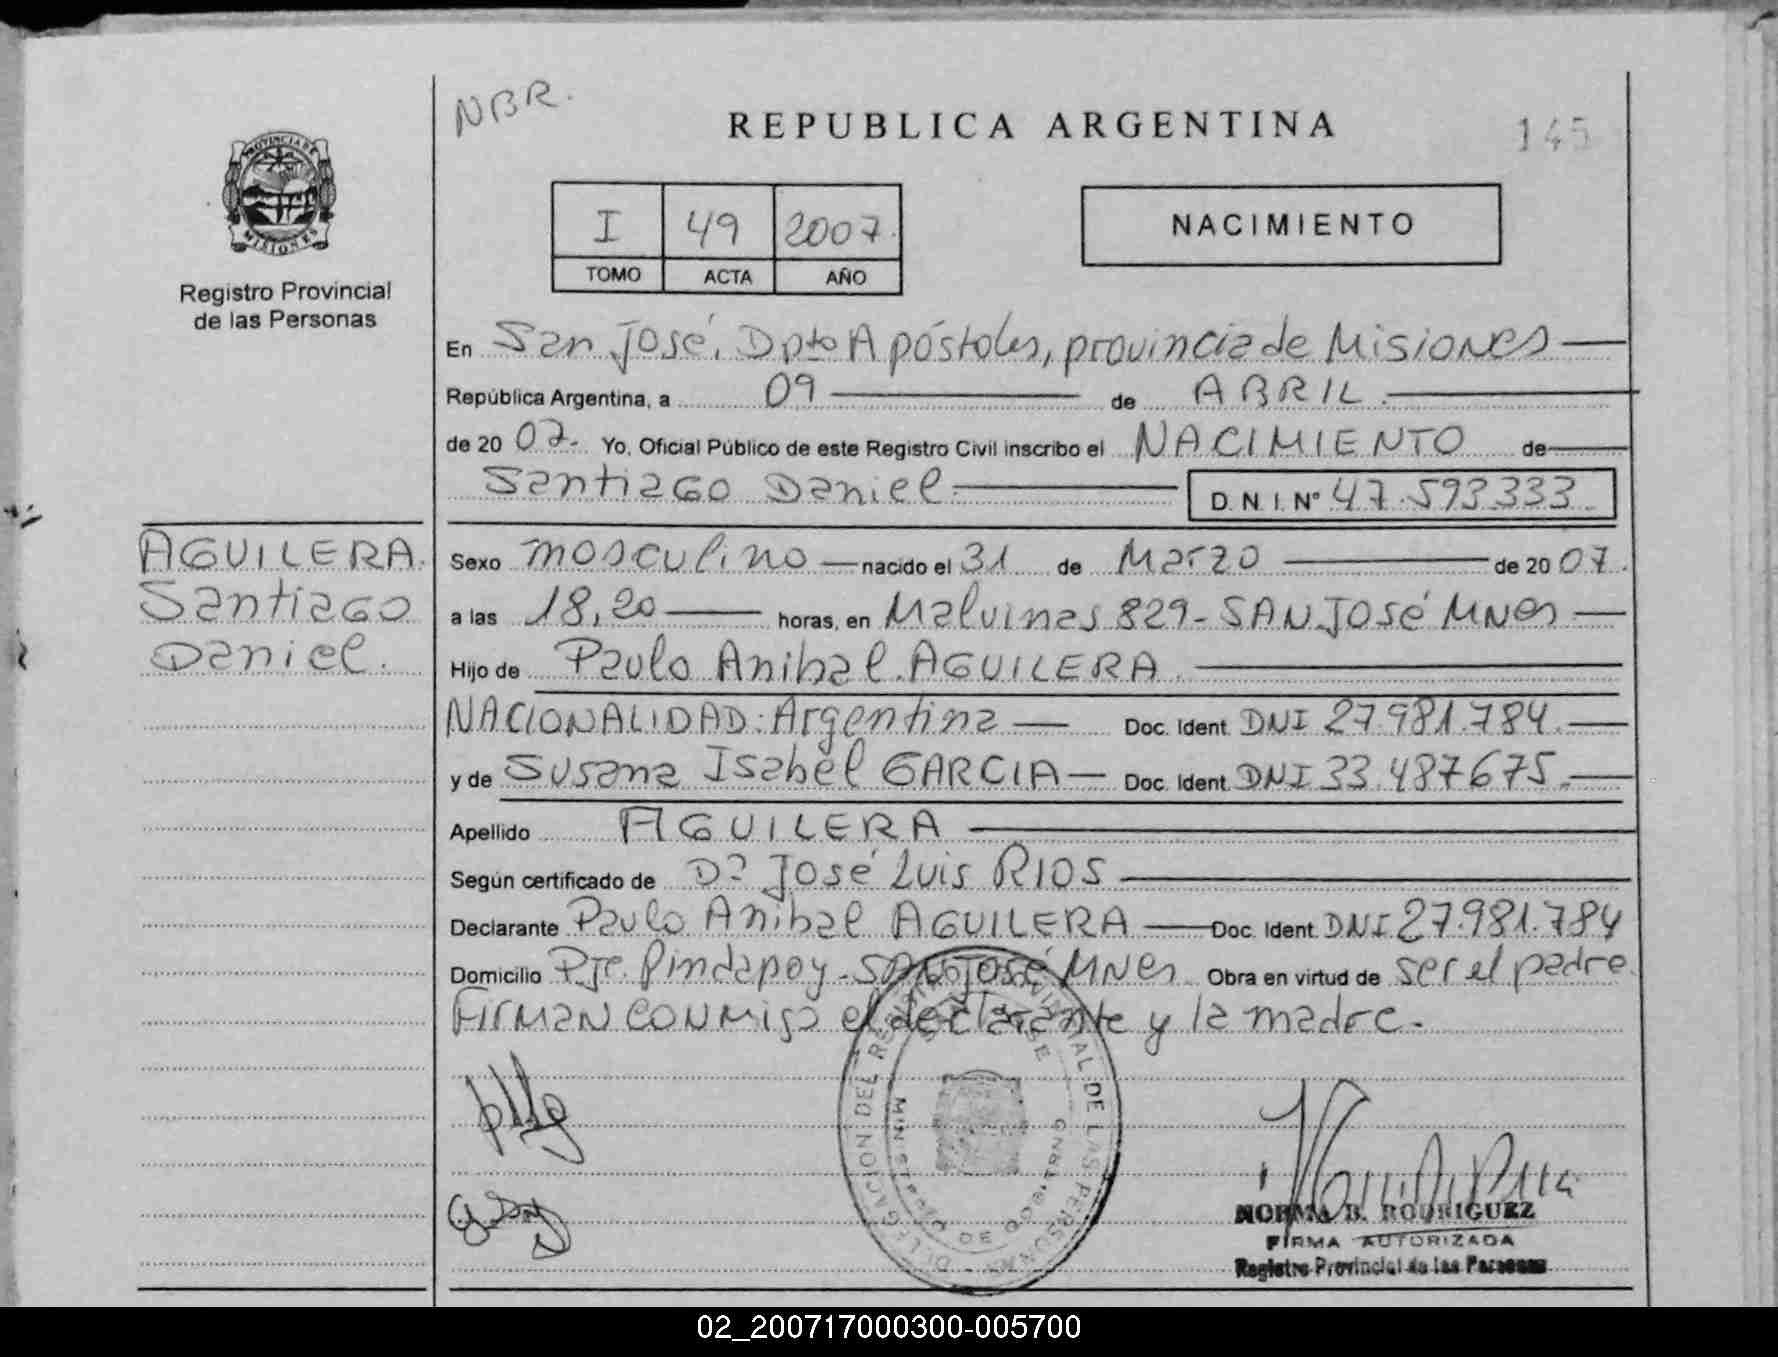 NBR.
REPUBLICA ARGENTINA
145
PROVINCIA DE
MISIONES
Registro Provincial
de las Personas
I 49 2007.
TOMO ACTA AÑO
NACIMIENTO
En San José, Dpto Apóstoles, provincia de Misiones
República Argentina, a 09 de ABRIL.
de 20 07. Yo, Oficial Público de este Registro Civil inscribo el NACIMIENTO de
Santiago Daniel. D. N. I. Nº 47.593333
AGUILERA.
Santiago
Daniel.
Sexo masculino nacido el 31 de Marzo de 20 07.
a las 18,20 horas, en Malvinas 829- SAN JOSé MNes
Hijo de Paulo Anibal AGUILERA
NACIONALIDAD: Argentina Doc. Ident. DNI 27.981.784.
y de Susana Isabel GARCIA Doc. Ident. DNI 33.487675.
Apellido AGUILERA
Según certificado de Dº José Luis RIOS
Declarante Paulo Anibal AGUILERA Doc. Ident. DNI 27.981.784
Domicilio Pje. Pindapoy - SAN José MNes Obra en virtud de ser el padre.
Firman conmigo el declarante y la madre.
DELEGACION DEL REGISTRO PROVINCIAL DE LAS PERSONAS
NORMA B. RODRIGUEZ
FIRMA AUTORIZADA
Registro Provincial de las Personas
02_200717000300-005700